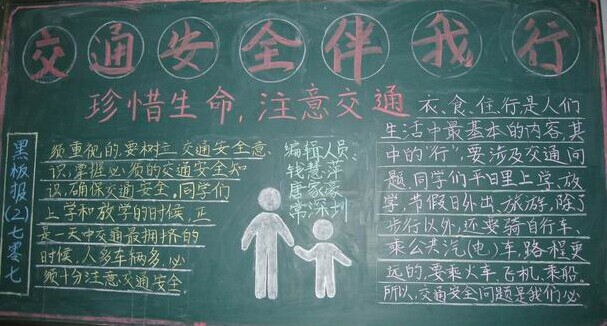 交通安全伴我行
珍惜生命,注意交通
衣、食、住、行,是人们
生活中最基本的内容,其
中的“行”,要涉及交通问
题,同学们平日里上学、放
学,节假日外出、旅游,除了
步行以外,还要骑自行车、
乘公共汽(电)车,路程更
远的,要乘火车、飞机、乘船。
所以,交通安全问题是我们必
须重视的,要树立交通安全意
识,掌握必须的交通安全知
识,确保交通安全,同学们
上学和放学的时候,正
是一天中交通最拥挤的
时候,人多车辆多,必
须十分注意交通安全
编辑人员:
钱慧萍
唐家豪
常深圳
黑板报(2)七零七